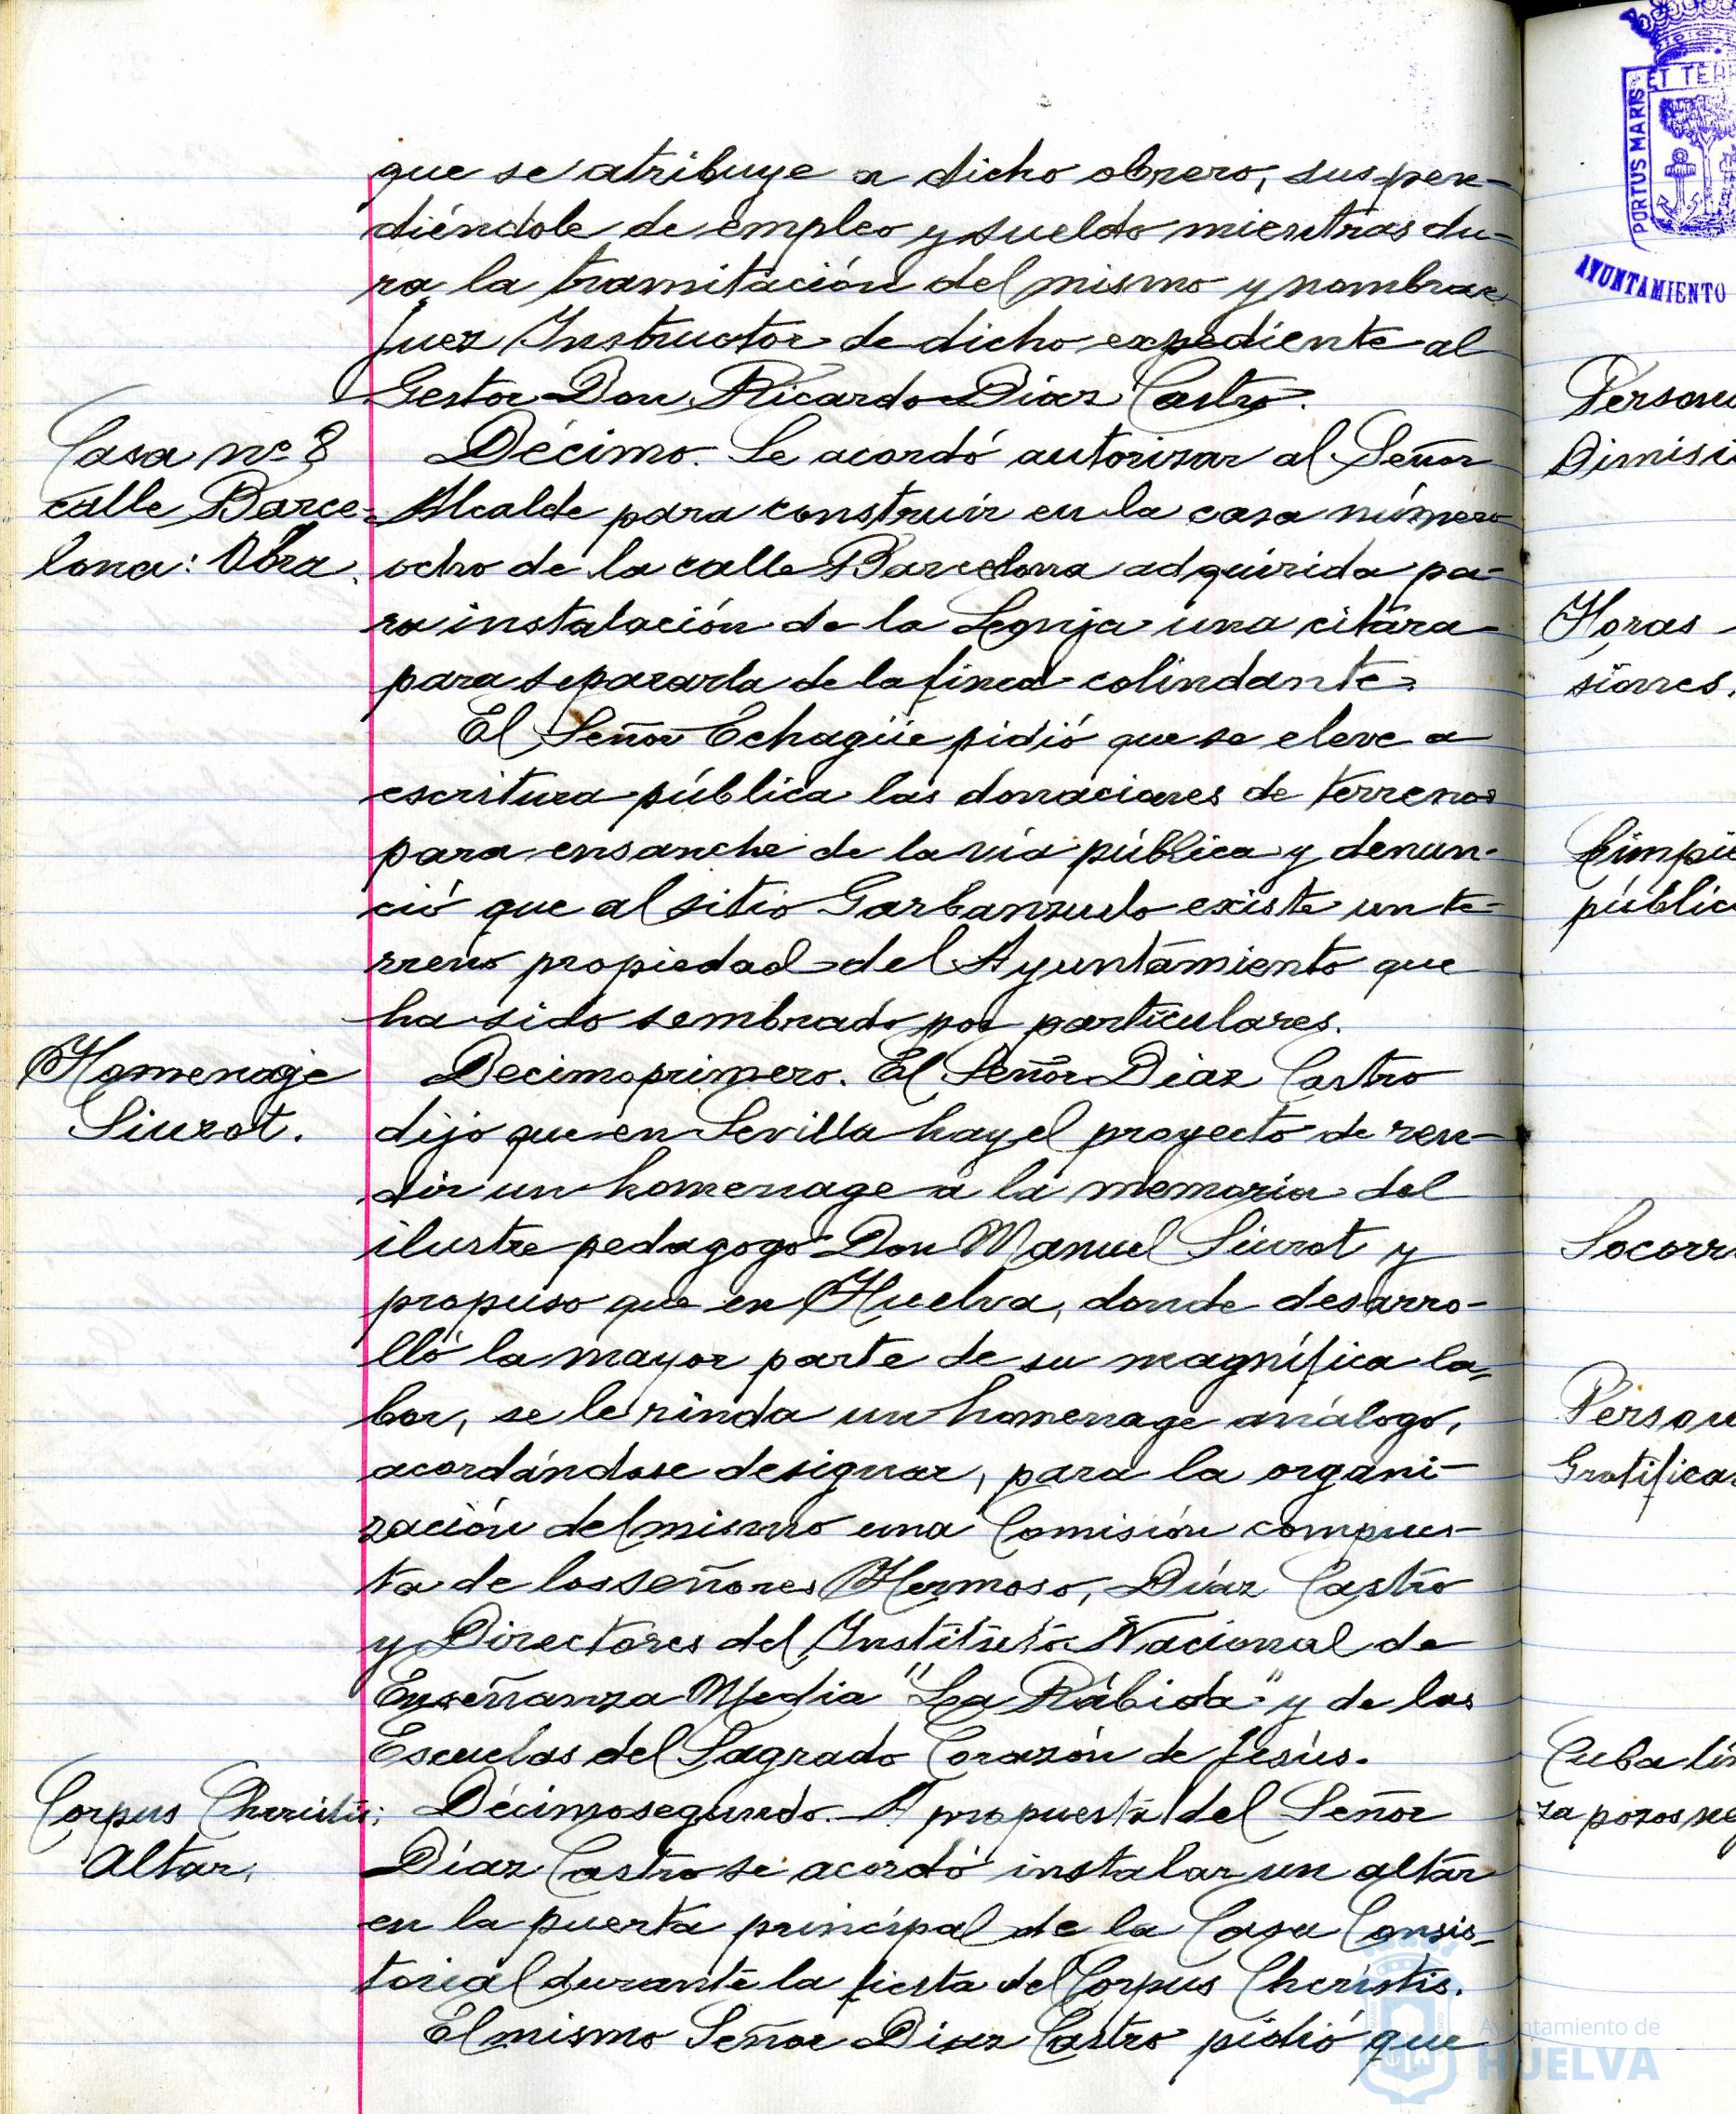 que se atribuye a dicho obrero, suspen-
diéndole de empleo y sueldo mientras du-
ra la tramitación del mismo y nombrar
Juez Instructor de dicho expediente al
Gestor Don Ricardo Díaz Castro.
Casa nº 8
calle Barce-
lona: Obra.
Décimo. Se acordó autorizar al Señor
Alcalde para construir en la casa número
ocho de la calle Barcelona adquirida pa-
ra instalación de la Lonja una citara
para separarla de la finca colindante.
El Señor Echagüe pidió que se eleve a
escritura pública las donaciones de terrenos
para ensanche de la vía pública y denun-
ció que al sitio Garbanzuelo existe un te-
rreno propiedad del Ayuntamiento que
ha sido sembrado por particulares.
Homenage
Siurot.
Decimoprimero. El Señor Diaz Castro
dijo que en Sevilla hay el proyecto de ren-
dir un homenage a la memoria del
ilustre pedagogo Don Manuel Siurot y
propuso que en Huelva, donde desarro-
lló la mayor parte de su magnífica la-
bor, se le rinda un homenage análogo,
acordándose designar, para la organi-
zación del mismo una Comisión compues-
ta de los señores Hermoso, Díaz Castro
y Directores del Instituto Nacional de
Enseñanza Media "La Rábida" y de las
Escuelas del Sagrado Corazón de Jesús.
Corpus Christis:
Altar.
Décimosegundo. A propuesta del Señor
Díaz Castro se acordó instalar un altar
en la puerta principal de la Casa Consis-
torial durante la fiesta del Corpus Christis.
El mismo Señor Diaz Castro pidió que
PORTUS MARIS ET TER
AYUNTAMIENTO
Person
Dimisi
Horas
siones.
Limpie
públic
Socorr
Person
Gratifica
Cuba lim
za pozos neg
Ayuntamiento de
HUELVA